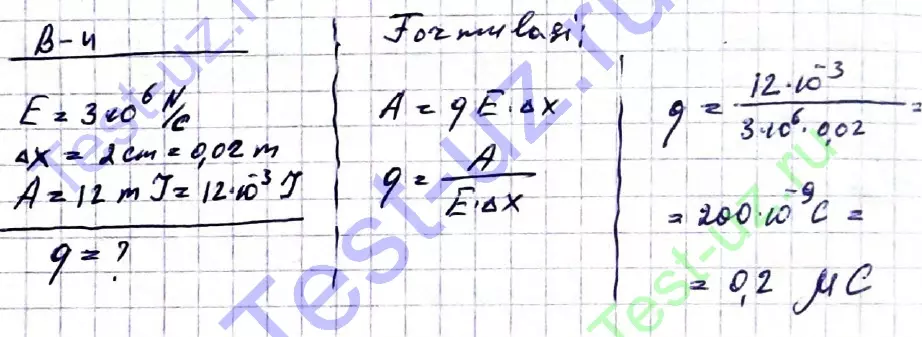 B-4
E = 3·10⁶ N/C
Δx = 2 cm = 0,02 m
A = 12 mJ = 12·10⁻³ J
q = ?
Formulasi;
A = qE·Δx
q = A / E·Δx
q = 12·10⁻³ / 3·10⁶·0,02 =
= 200·10⁻⁹ C =
= 0,2 μC
Test-uz.ru
Test-uz.ru
Test-uz.ru